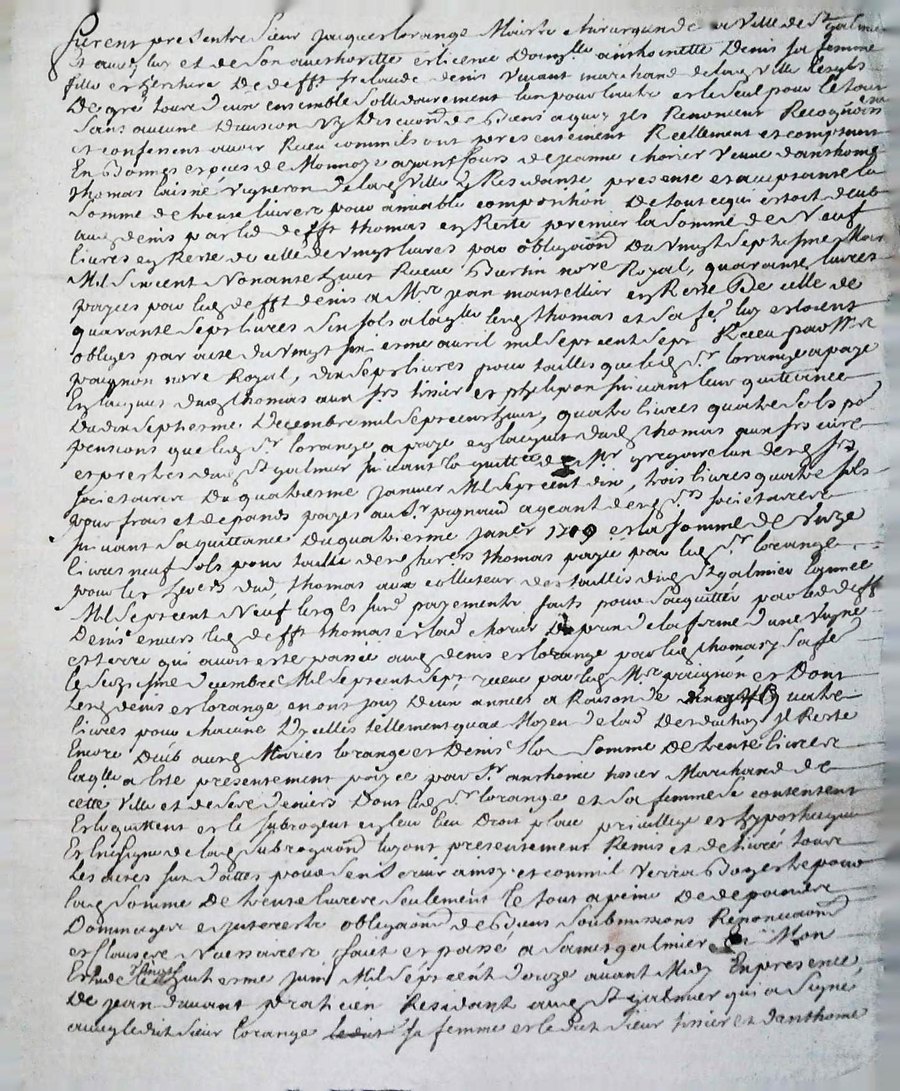 Furent presentre Sieur Jacques lorange Maistre chirurgien de la Ville de St galmier
Et avec luy et de son authorité et licence Damlle anthoinette Denis sa femme
fille et heritiere De defft claude denis vivant marchand de lad ville lesqls
De gré tous deux ensemble sollidairement lun pour lautre et le seul pour le tout
Sans aucune Division ny Discuon de biens a quoy jls Renoncent Recognoissent
et confessent avoir Receu comme ils ont presentement Reellement et comptant
En bonnes especes de Monnoye ayant cours de jeanne chorier veuve danthome
thomas laisné vigneron de lad Ville y Residante presente et acceptante la
Somme de trente livres pour amiable composition De tout ce qui estoit deub
aud denis par led defft thomas en Reste premier la Somme de Neuf
livres en Reste de celle de vingt livres par obligaon Du vingt septiesme Mar
Mil Six cent Nonante huit Receue Burtin nore Royal, quarante livres
payees par led defft denis a Mr jean mantellier en Reste De celle de
quarante sept livres Six sols a laqlle led thomas et sa fe luy estoient
obliges par acte du vingt sixiesme avril mil sept cent sept Receu par Mr
paignon nore Royal, dix sept livres pour tailles que led Sr lorange a payé
En lacquit dud thomas aux frs tissier et philipon suivant leur quittance
Du dix septiesme Decembre mil sept cent huit, quatre livres quatre sols pr
pensions que led Sr lorange a payé en lacquit dud thomas aux frs curé
et prestres dud St galmier suivant la quittce de Mr gregoire lun desd frs
Societaires Du quatriesme janvier Mil sept cent dix, trois livres quatre sols
pour frais et depands payes au Sr pignaud ageant desd Srs societaires
suivant sa quittance Du quatriesme janer 1709 et la somme de Unze
livres neuf sols pour taille des hers thomas payée par led Sr lorange
pour les hoirs dud thomas aux collecteur des tailles dud St galmier lannée
Mil Sept cent Neuf lesqls susd payements faits pour sacquitter par led defft
Denis envers led defft thomas et lad chorier Du prix de la ferme dune vigne
et terre qui avoit esté passée aud denis et lorange par led thomas et sa fe
le Seiziesme decembre Mil Sept cent Sept, receue par led Mr paignon et Dont
lesd denis et lorange en ont jouy Deux annees a Raison de quatre
livres pour chacune Dycelles tellement quau Moyen de lad Deduction jl Reste
Encore Deub aud Maries lorange et Denis la Somme De trente livres
laqlle a esté presentement payée par Sr anthoine tissier Marchand de
cette Ville et de ses deniers Dont led Sr lorange et sa femme se contentent
Et lequittent et le subrogent en leur lieu Droit place privillege et hypotheque
Et En signe de lad subrogaon luy ont presentement Remis et delivré tous
les actes sus dattes pour sen servir ainsy et comme il verra bon estre pour
lad somme De trente livres seulement le tout a peine De depans
Dommages et jnterests obligaon de biens soubmissions Renonciaon
et clauses Necessaires faict et passé a Saint galmier Mon
Estude le huitiesme juin Mil Sept cent Douze avant Midy En presence
De jean davant praticien Resident aud St galmier qui a Signe
avec ledit Sieur lorange sa femme et ledit Sieur tissier et danthome